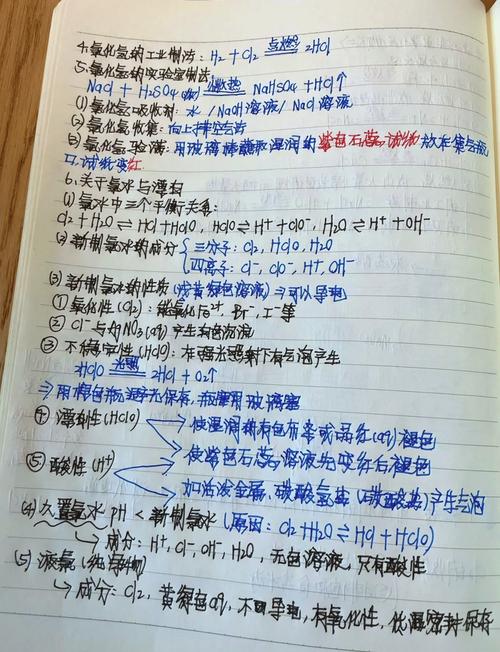 4.氯化氢的工业制法：H₂ + Cl₂ 点燃 2HCl
5.氯化氢的实验室制法
NaCl + H₂SO₄(浓) 微热 NaHSO₄ + HCl↑
(1)氯化氢吸收剂：水 / NaOH溶液 / NaCl溶液
(2)氯化氢收集：向上排空气法
(3)氯化氢验满：用玻璃棒蘸取湿润的紫色石蕊试纸放在集气瓶
口，试纸变红
6.关于氯水与漂白
(1)氯水中三个平衡关系：
Cl₂ + H₂O ⇌ HCl + HClO, HClO ⇌ H⁺ + ClO⁻, H₂O ⇌ H⁺ + OH⁻
(2)新制氯水的成分 { 三分子：Cl₂, HClO, H₂O
四离子：Cl⁻, ClO⁻, H⁺, OH⁻
(3)新制氯水的性质(浅黄绿色溶液) ⇒可以导电
①氧化性(Cl₂)：能氧化Fe²⁺, Br⁻, I⁻等
②Cl⁻与AgNO₃(aq)产生白色沉淀
③不稳定性(HClO)：在强光照射下有气泡产生
2HClO 光照 2HCl + O₂↑
⇒用棕色瓶避光保存，瓶塞用玻璃塞
④漂白性(HClO) → 使湿润的有色布条或品红(aq)褪色
→ 使紫色石蕊溶液先变红后褪色
⑤酸性(H⁺)
→ 加活泼金属，碳酸氢盐(碳酸盐)产生气泡
(4)久置氯水 pH < 新制氯水 (原因：Cl₂ + H₂O ⇌ HCl + HClO)
↳成分：H⁺, Cl⁻, OH⁻, H₂O，无色溶液，只有酸性
(5)液氯(纯净物)
↳成分：Cl₂，黄绿色aq，不可导电，有氧化性，低温密封保存